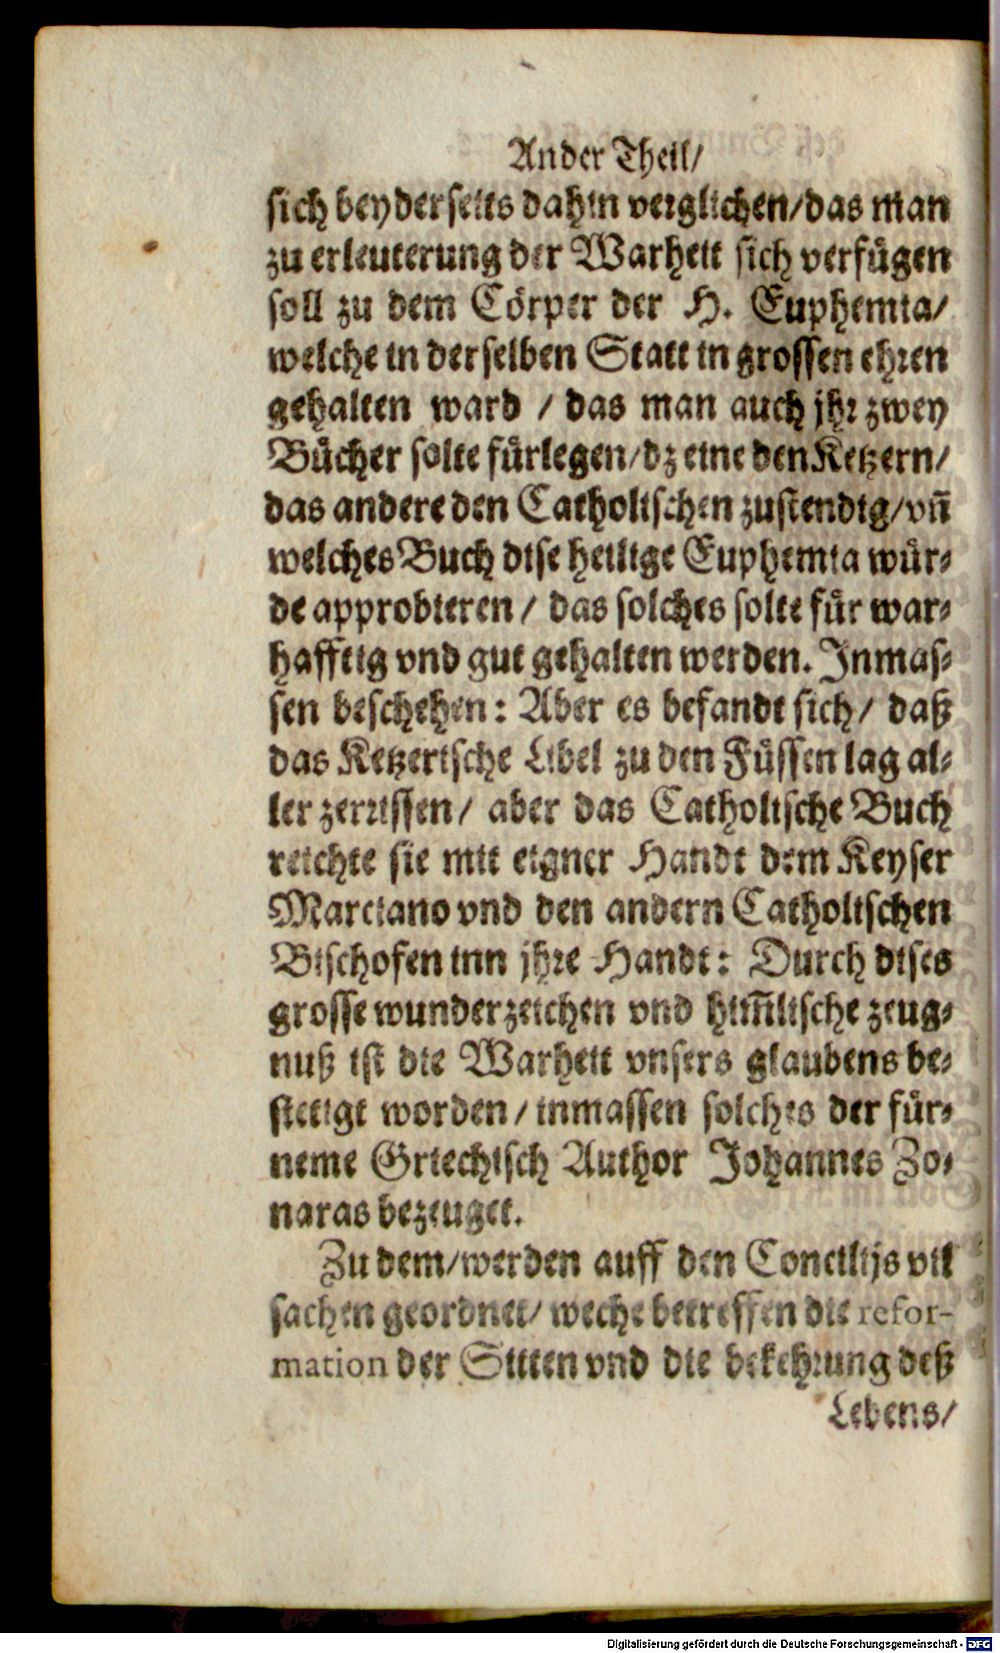 Ander Theil/
sich beyderseits dahin verglichen/das man
zu erleuterung der Warheit sich verfügen
soll zu dem Cörper der H. Euphemia/
welche in derselben Statt in grossen ehren
gehalten ward / das man auch jhr zwey
Bücher solte fürlegen/dz eine den Ketzern/
das andere den Catholischen zustendig/vñ
welches Buch dise heilige Euphemia wür-
de approbieren / das solches solte für war-
hafftig vnd gut gehalten werden. Inmas-
sen beschehen: Aber es befandt sich/ daß
das Ketzerische Libel zu den Füssen lag al-
ler zerrissen/ aber das Catholische Buch
reichte sie mit eigner Handt dem Keyser
Marciano vnd den andern Catholischen
Bischofen inn jhre Handt: Durch dises
grosse wunderzeichen vnd him̃lische zeug-
nuß ist die Warheit vnsers glaubens be-
stetigt worden/ inmassen solches der für-
neme Griechisch Author Johannes Zo-
naras bezeuget.
Zu dem/werden auff den Concilijs vil
sachen geordnet/ weche betreffen die refor-
mation der Sitten vnd die bekehrung deß
Lebens/
Digitalisierung gefördert durch die Deutsche Forschungsgemeinschaft - DFG